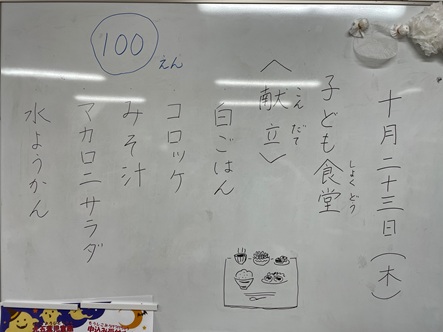 十月二十三日(木)
子ども食堂
しょくどう
〈献立〉
こんだて
白ごはん
コロッケ
みそ汁
マカロニサラダ
水ようかん
100えん